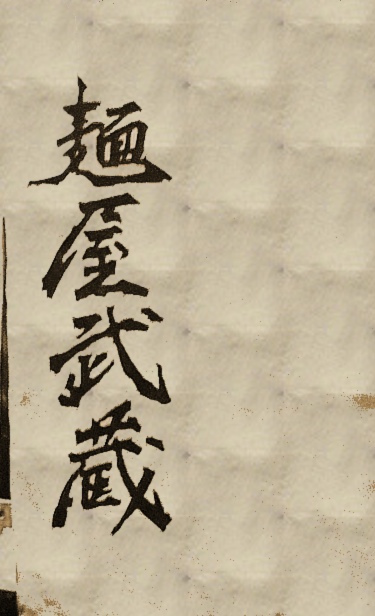 麺屋武蔵